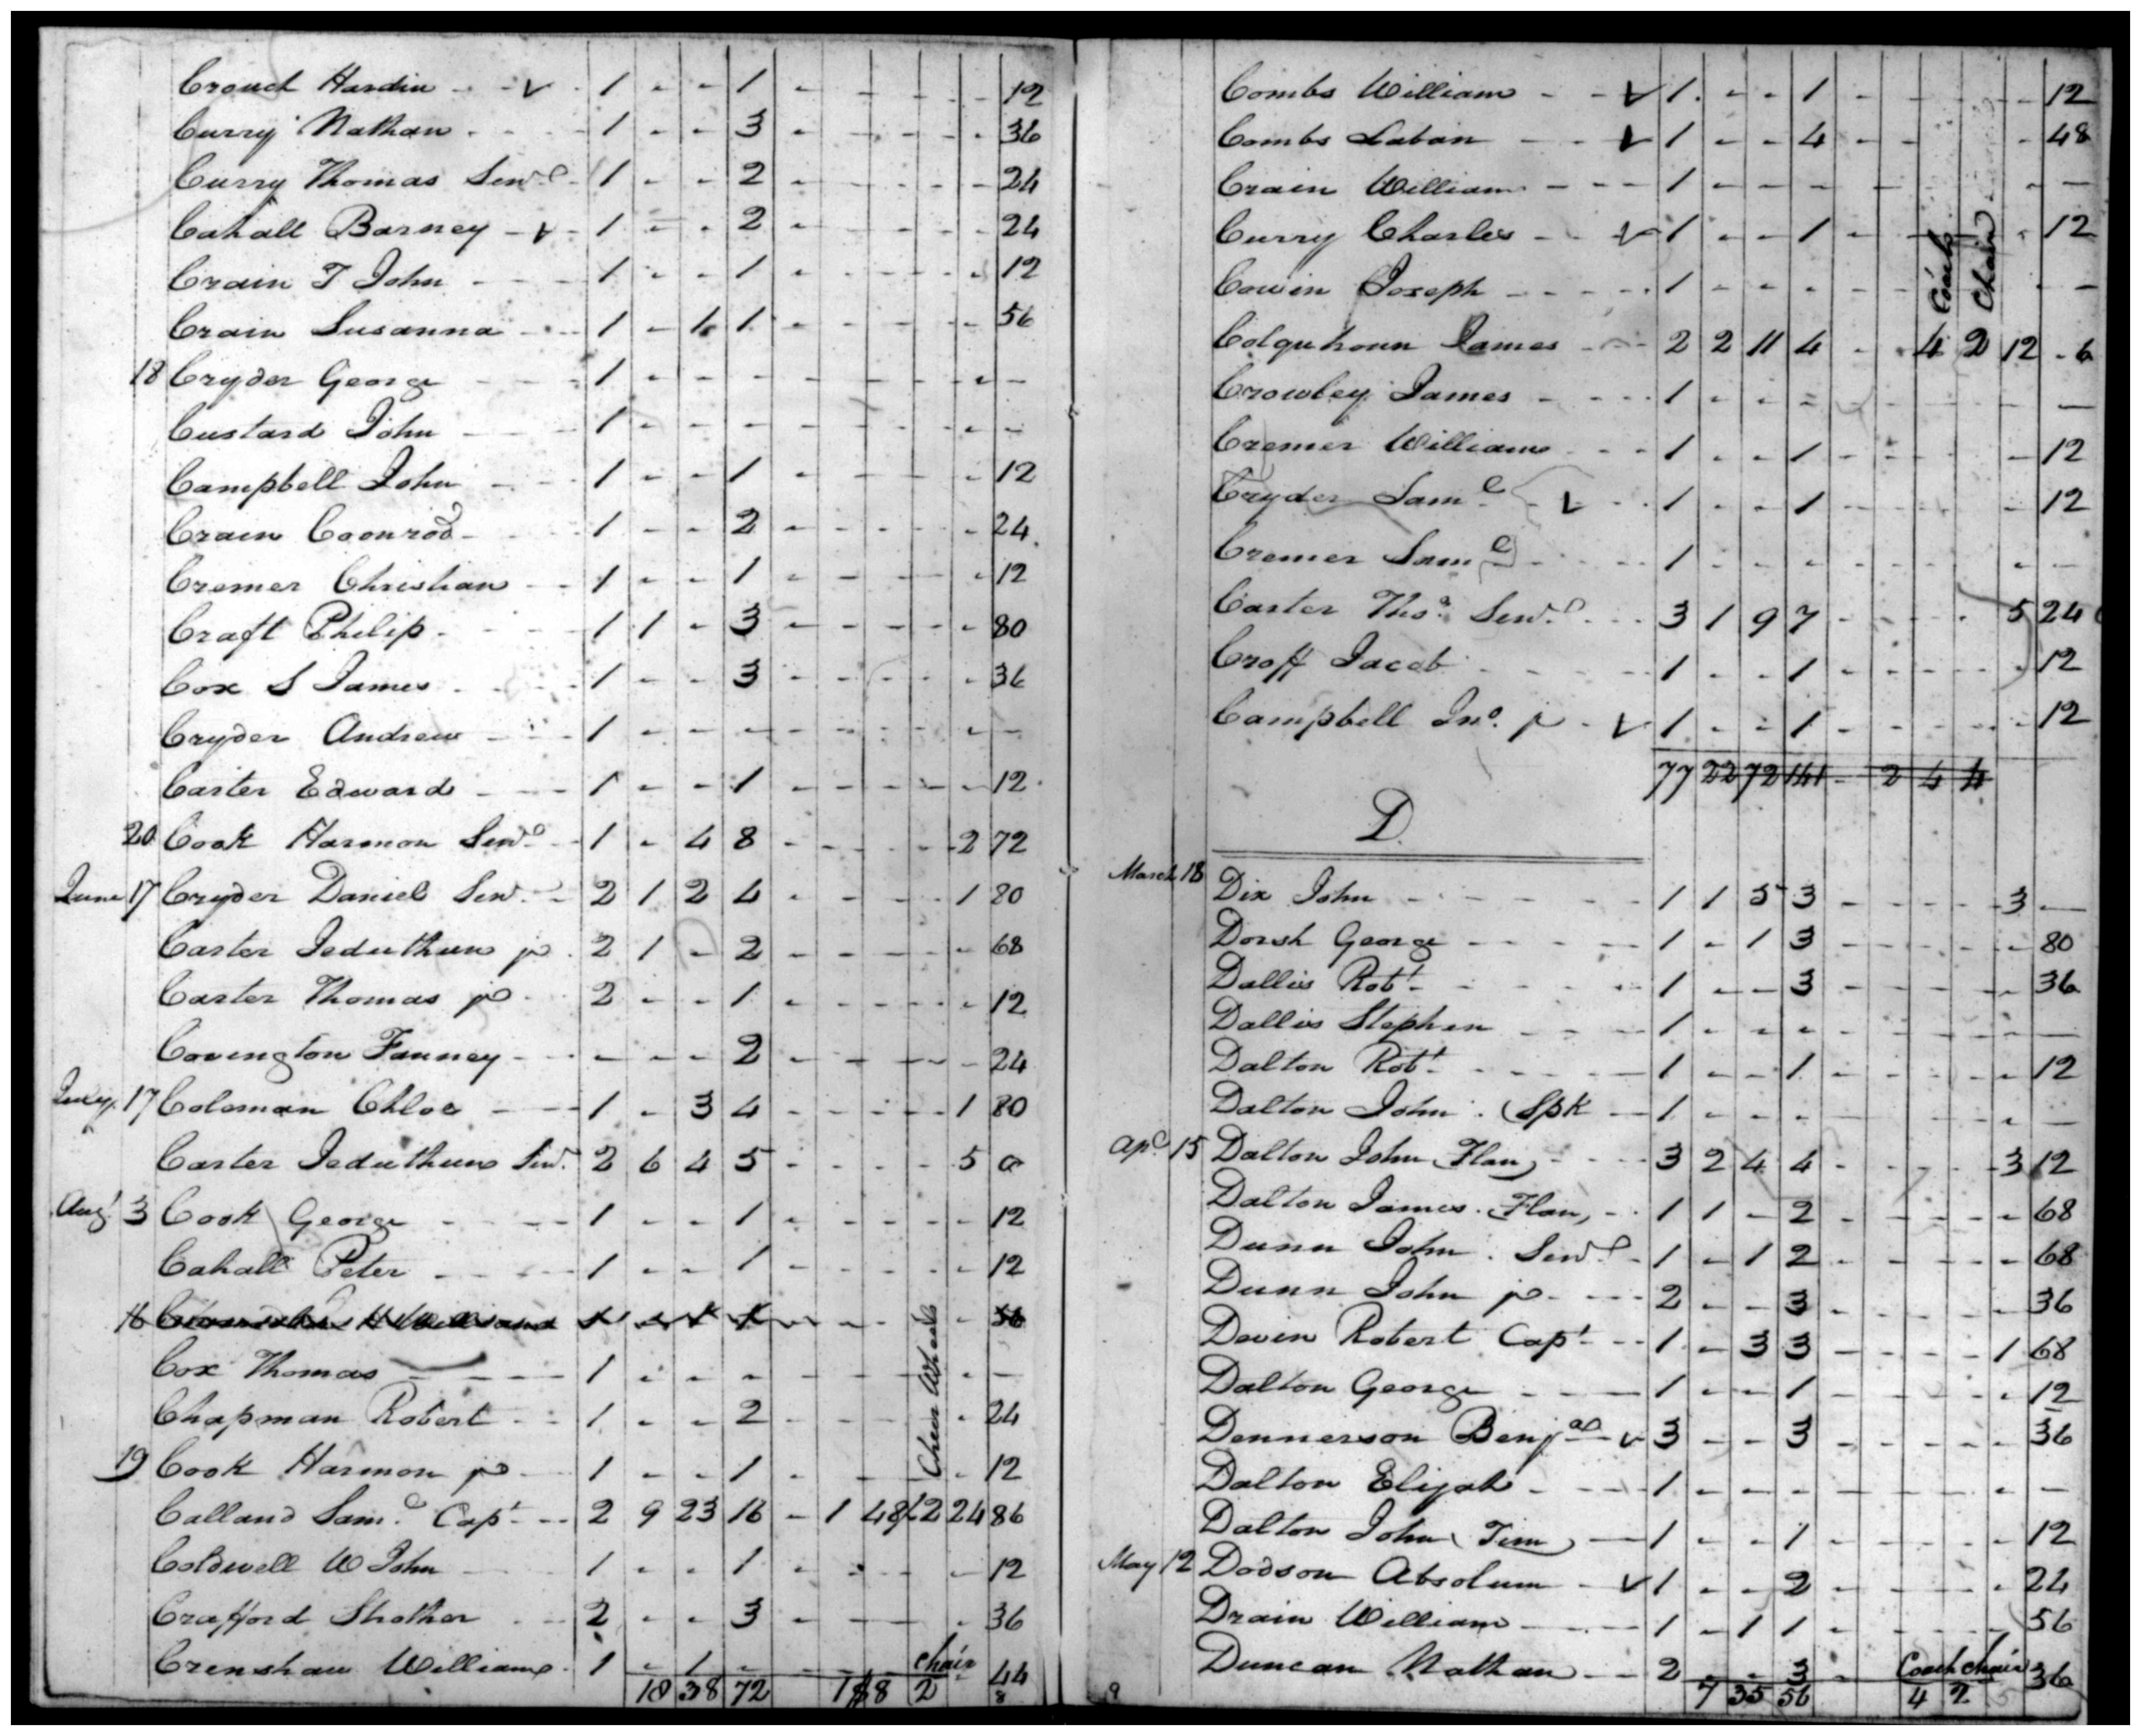 Crouch Hardin - - v - 1 - - 1 - - - - - 12
Curry Nathan - - - 1 - - 3 - - - - - 36
Curry Thomas Senr - 1 - - 2 - - - - - 24
Cahall Barney - v - 1 - - 2 - - - - - 24
Crain T John - - - 1 - - 1 - - - - - 12
Crain Susanna - - - 1 - 1 1 - - - - - 56
18 Cryder George - - - 1 - - - - - - - - -
Custard John - - - 1 - - - - - - - - -
Campbell John - - - 1 - - 1 - - - - - 12
Crain Coonrod - - 1 - - 2 - - - - - 24
Cremer Christian - - 1 - - 1 - - - - - 12
Craft Philip - - - 1 1 - 3 - - - - - 80
Cox S James - - - 1 - - 3 - - - - - 36
Cryder Andrew - - - 1 - - - - - - - - -
Carter Edward - - - 1 - - 1 - - - - - 12
20 Cook Harmon Senr - 1 - 4 8 - - - - 2 72
June 17 Cryder Daniel Senr - 2 1 2 4 - - - - 1 80
Carter Jeduthun jr - 2 1 - 2 - - - - - 68
Carter Thomas jr - 2 - - 1 - - - - - 12
Covington Fanney - - - - - 2 - - - - - 24
July 17 Coleman Chloe - - 1 - 3 4 - - - - 1 80
Carter Jeduthun Senr. 2 6 4 5 - - - - 5 0
Augt 3 Cook George - - - 1 - - 1 - - - - - 12
Cahall Peter - - - 1 - - 1 - - - - - 12
16
Cox Thomas - - - 1 - - - - - - - - -
Chapman Robert - - 1 - - 2 - - - - 24
19 Cook Harmon jr - 1 - - 1 - - - - 12
Cheer Wheels
Calland Saml Capt - - 2 9 23 16 - 1 48 2 24 86
Coldwell W John - - 1 - - 1 - - - - 12
Crafford Strother - - 2 - - 3 - - - - 36
Crenshaw William - 1 - 1 - - - - chair - 44
18 38 72 2 8
Combs William - - v 1 - - 1 - - - - - 12
Combs Laban - - v 1 - - 4 - - - 48
Crain William - - - 1 - - - - - - -
Curry Charles - - v 1 - - 1 - - 12
Cowin Joseph - - - - 1 - - - - - - -
Coach Chair
Colquhoun James - - - 2 2 11 4 - 4 2 12 - 6
Crowley James - - - 1 - - - - - - - -
Cremer William - - - 1 - - 1 - - - - 12
Cryder Saml - v - - 1 - - 1 - - - - - 12
Cremer Saml - - - - 1 - - - - - - - - -
Carter Thos Senr - - - 3 1 9 7 - - - - 5 24
Croff Jacob - - - - 1 - - 1 - - - - - 12
Campbell Jno. jr - v 1 - - 1 - - - - - 12
77 22 72 141 - 2 4 4
D
March 18 Dix John - - - - 1 1 5 3 - - - - 3 -
Dorsh George - - - - 1 - 1 3 - - - - - 80
Dallis Robt - - - - 1 - - 3 - - - - - 36
Dallis Stephen - - - 1 - - - - - - - - -
Dalton Robt - - - - 1 - - 1 - - - - - 12
Dalton John (Spk - 1 - - - - - - - - -
Apl 15 Dalton John (Flan) - - - 3 2 4 4 - - - - 3 12
Dalton James (Flan) - - 1 1 - 2 - - - - - 68
Dunn John Senr - 1 - 1 2 - - - - - 68
Dunn John jr - - - 2 - - 3 - - - - - 36
Devin Robert Capt - - 1 - 3 3 - - - - 1 68
Dalton George - - - 1 - - 1 - - - - - 12
Dennerson Benja - v 3 - - 3 - - - - - 36
Dalton Elijah - - - 1 - - - - - - - - -
Dalton John (Tim) - 1 - - 1 - - - - - 12
May 12 Dodson Absolum - v 1 - - 2 - - - - - 24
Drain William - - - 1 - 1 1 - - - - - 56
Duncan Nathan - - 2 - - 3 - Coach Chair 36
9 7 35 56 4 2